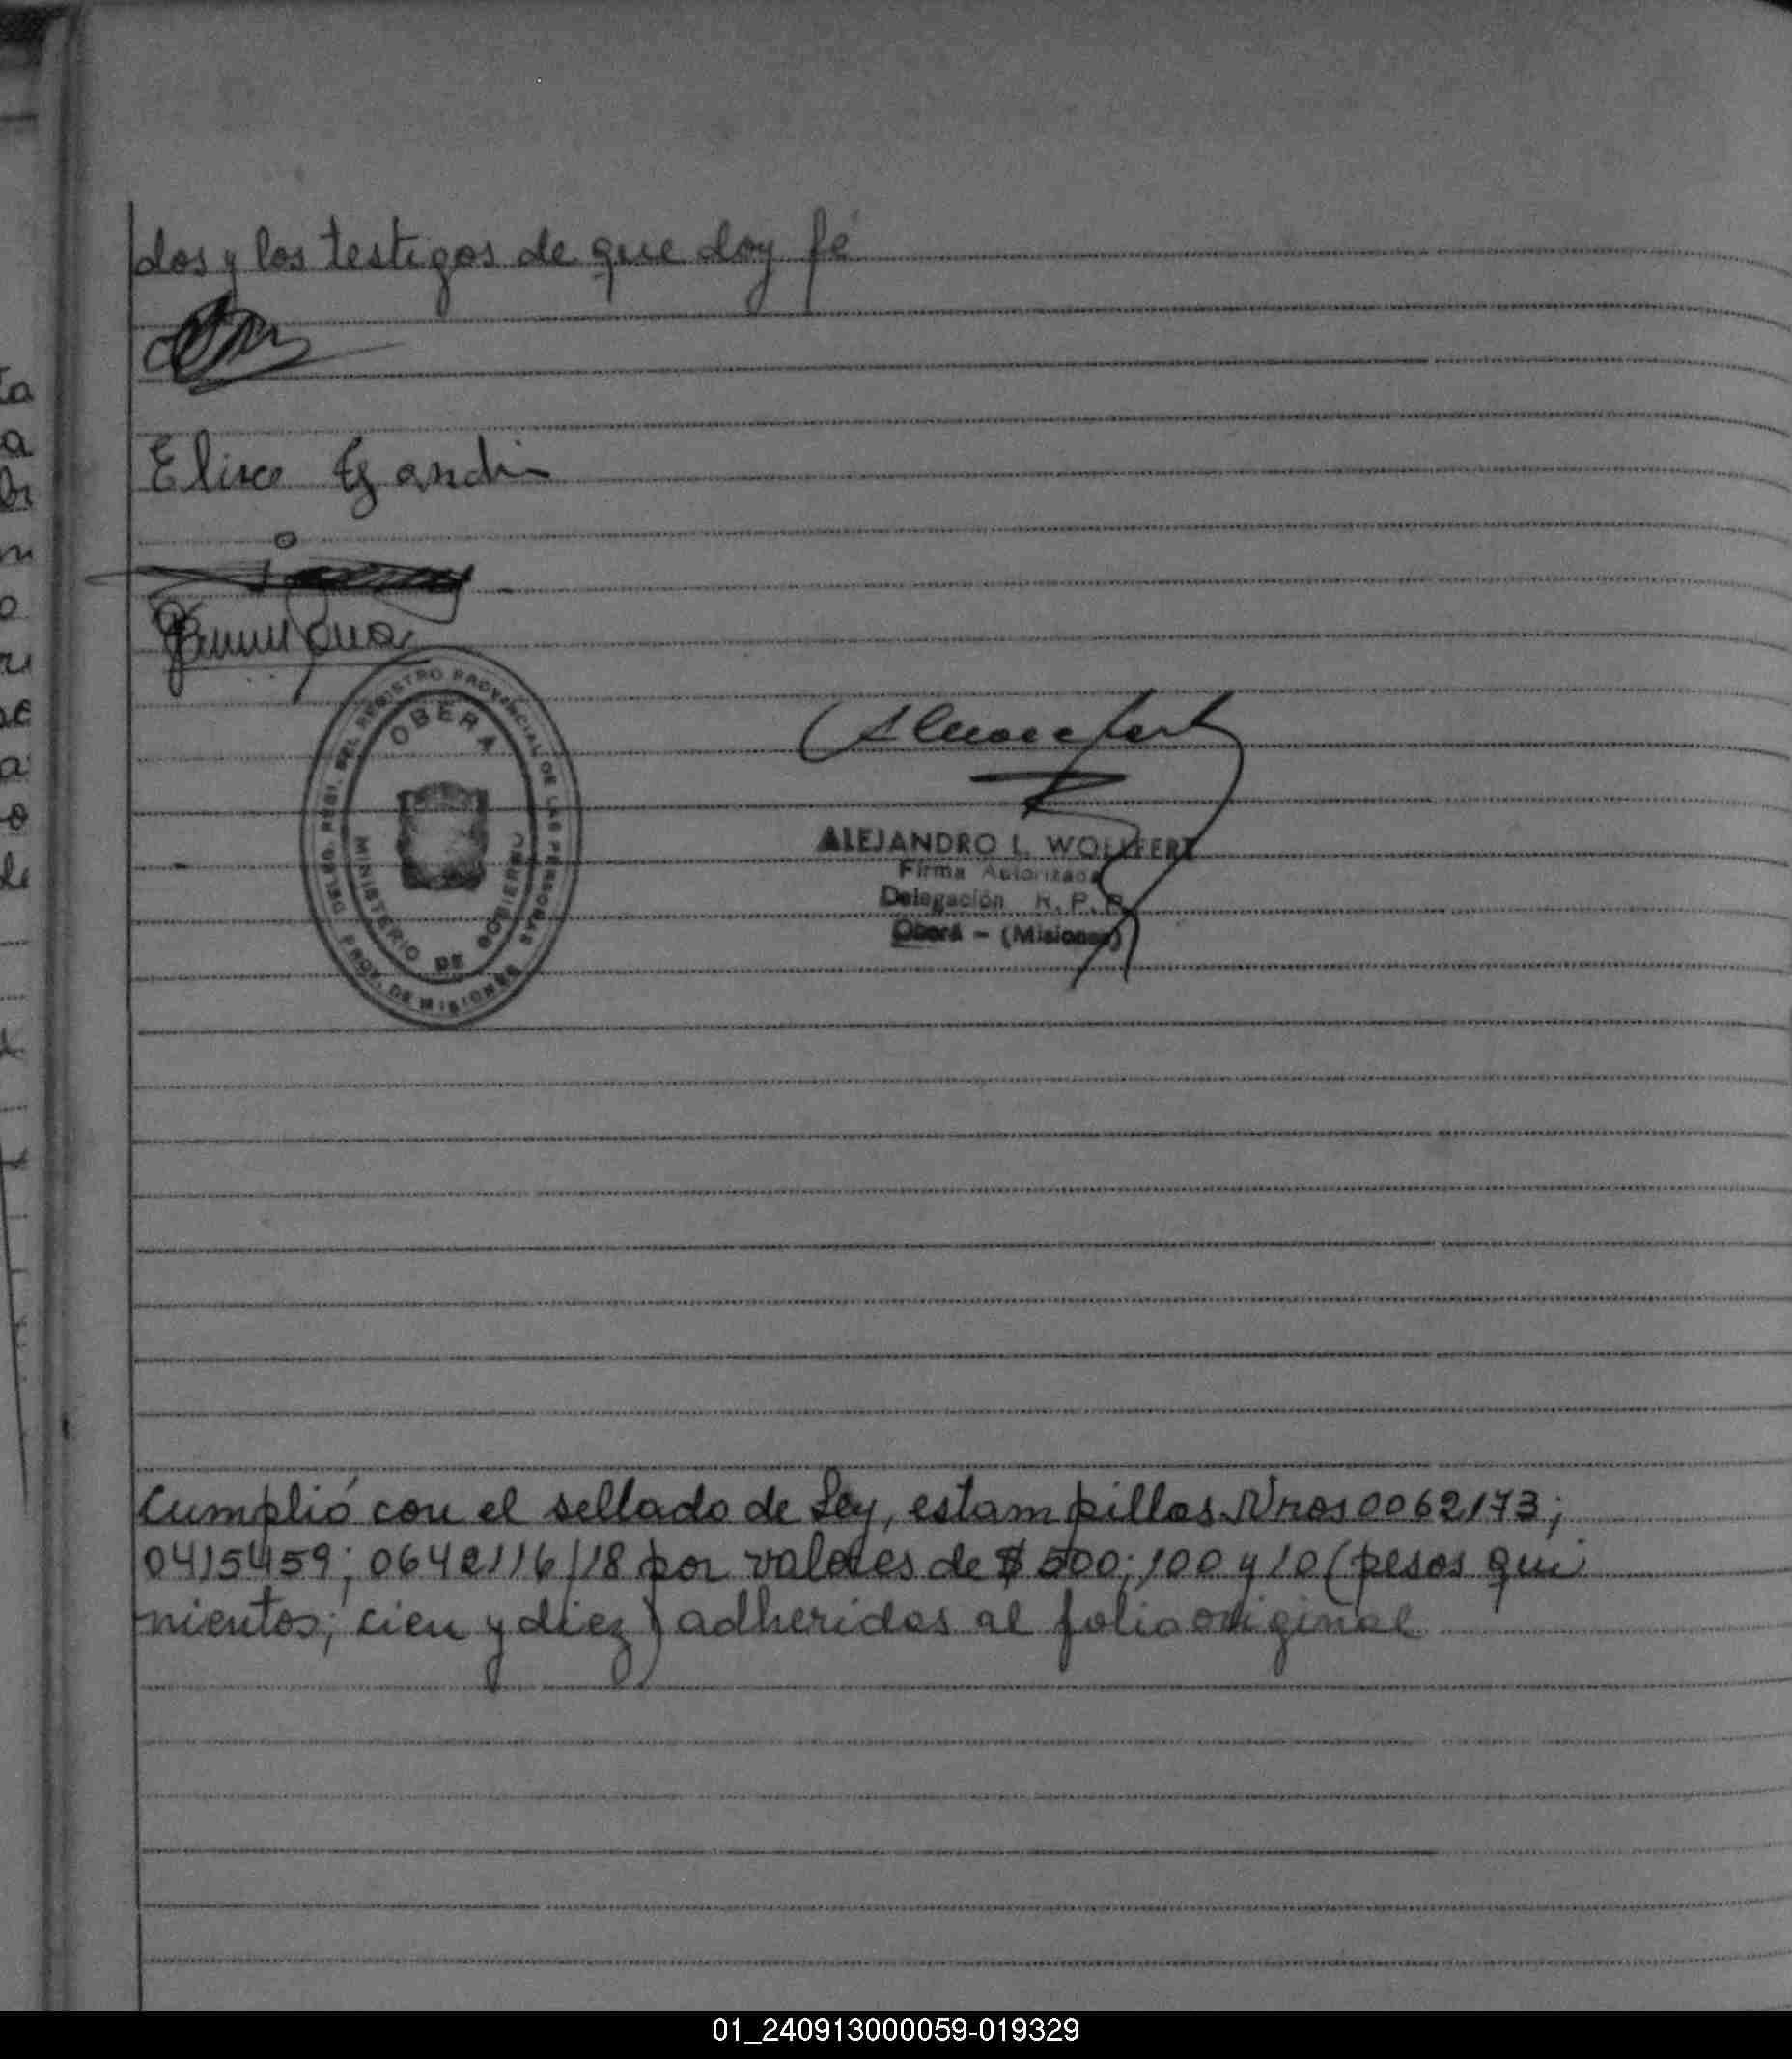 dos y los testigos de que doy fé
Elisa
DELEG. REGI. DEL REGISTRO PROVINCIAL DE LAS PERSONAS
OBERA
MINISTERIO DE GOBIERNO
PROV. DE MISIONES
ALEJANDRO L. WOLFFERT
Firma Autorizada
Delegación R. P. P.
Oberá - (Misiones)
Cumplió con el sellado de Ley, estampillas Nros 0062173;
0415459; 0642116/18 por valores de $ 500; 100 y 10 (pesos qui
nientos; cien y diez) adheridas al folio original
01_240913000059-019329